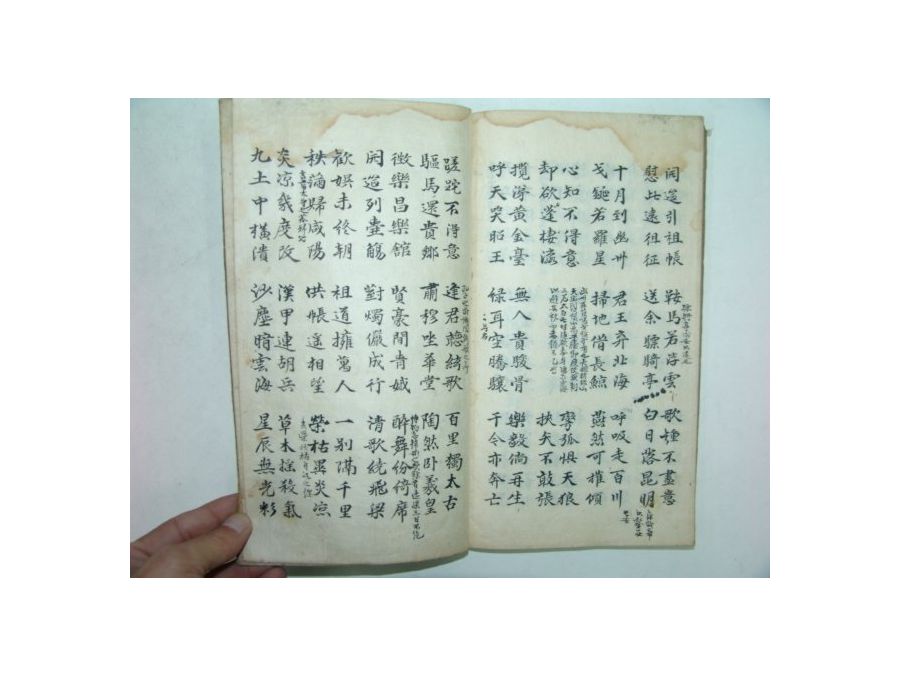 開筵引祖帳
慰此遠徂征
鞍馬若浮雲
送余驃騎亭
歌鍾不盡意
白日落昆明
十月到幽州
戈鋋若羅星
君王弃北海
掃地借長鯨
呼吸走百川
燕然可摧傾
心知不得意
却欲蓬棲瀛
彎弧惧天狼
挾矢不敢張
攬涕黄金臺
呼天哭昭王
無人貴駿骨
緑耳空騰驤
樂毅倘再生
于今亦奔亡
蹉跎不得意
驅馬還貴鄉
逢君聽絃歌
肅穆坐華堂
百里獨太古
陶然卧羲皇
徵樂昌樂舘
開筵列壺觴
賢豪間青娥
對燭儼成行
醉舞紛綺席
清歌繞飛梁
歡娯未終朝
秩滿歸咸陽
祖道擁萬人
供帳遥相望
一別隔千里
榮枯異炎凉
炎凉幾度改
九土中橫潰
漢甲連胡兵
沙塵暗雲海
草木搖殺氣
星辰無光彩